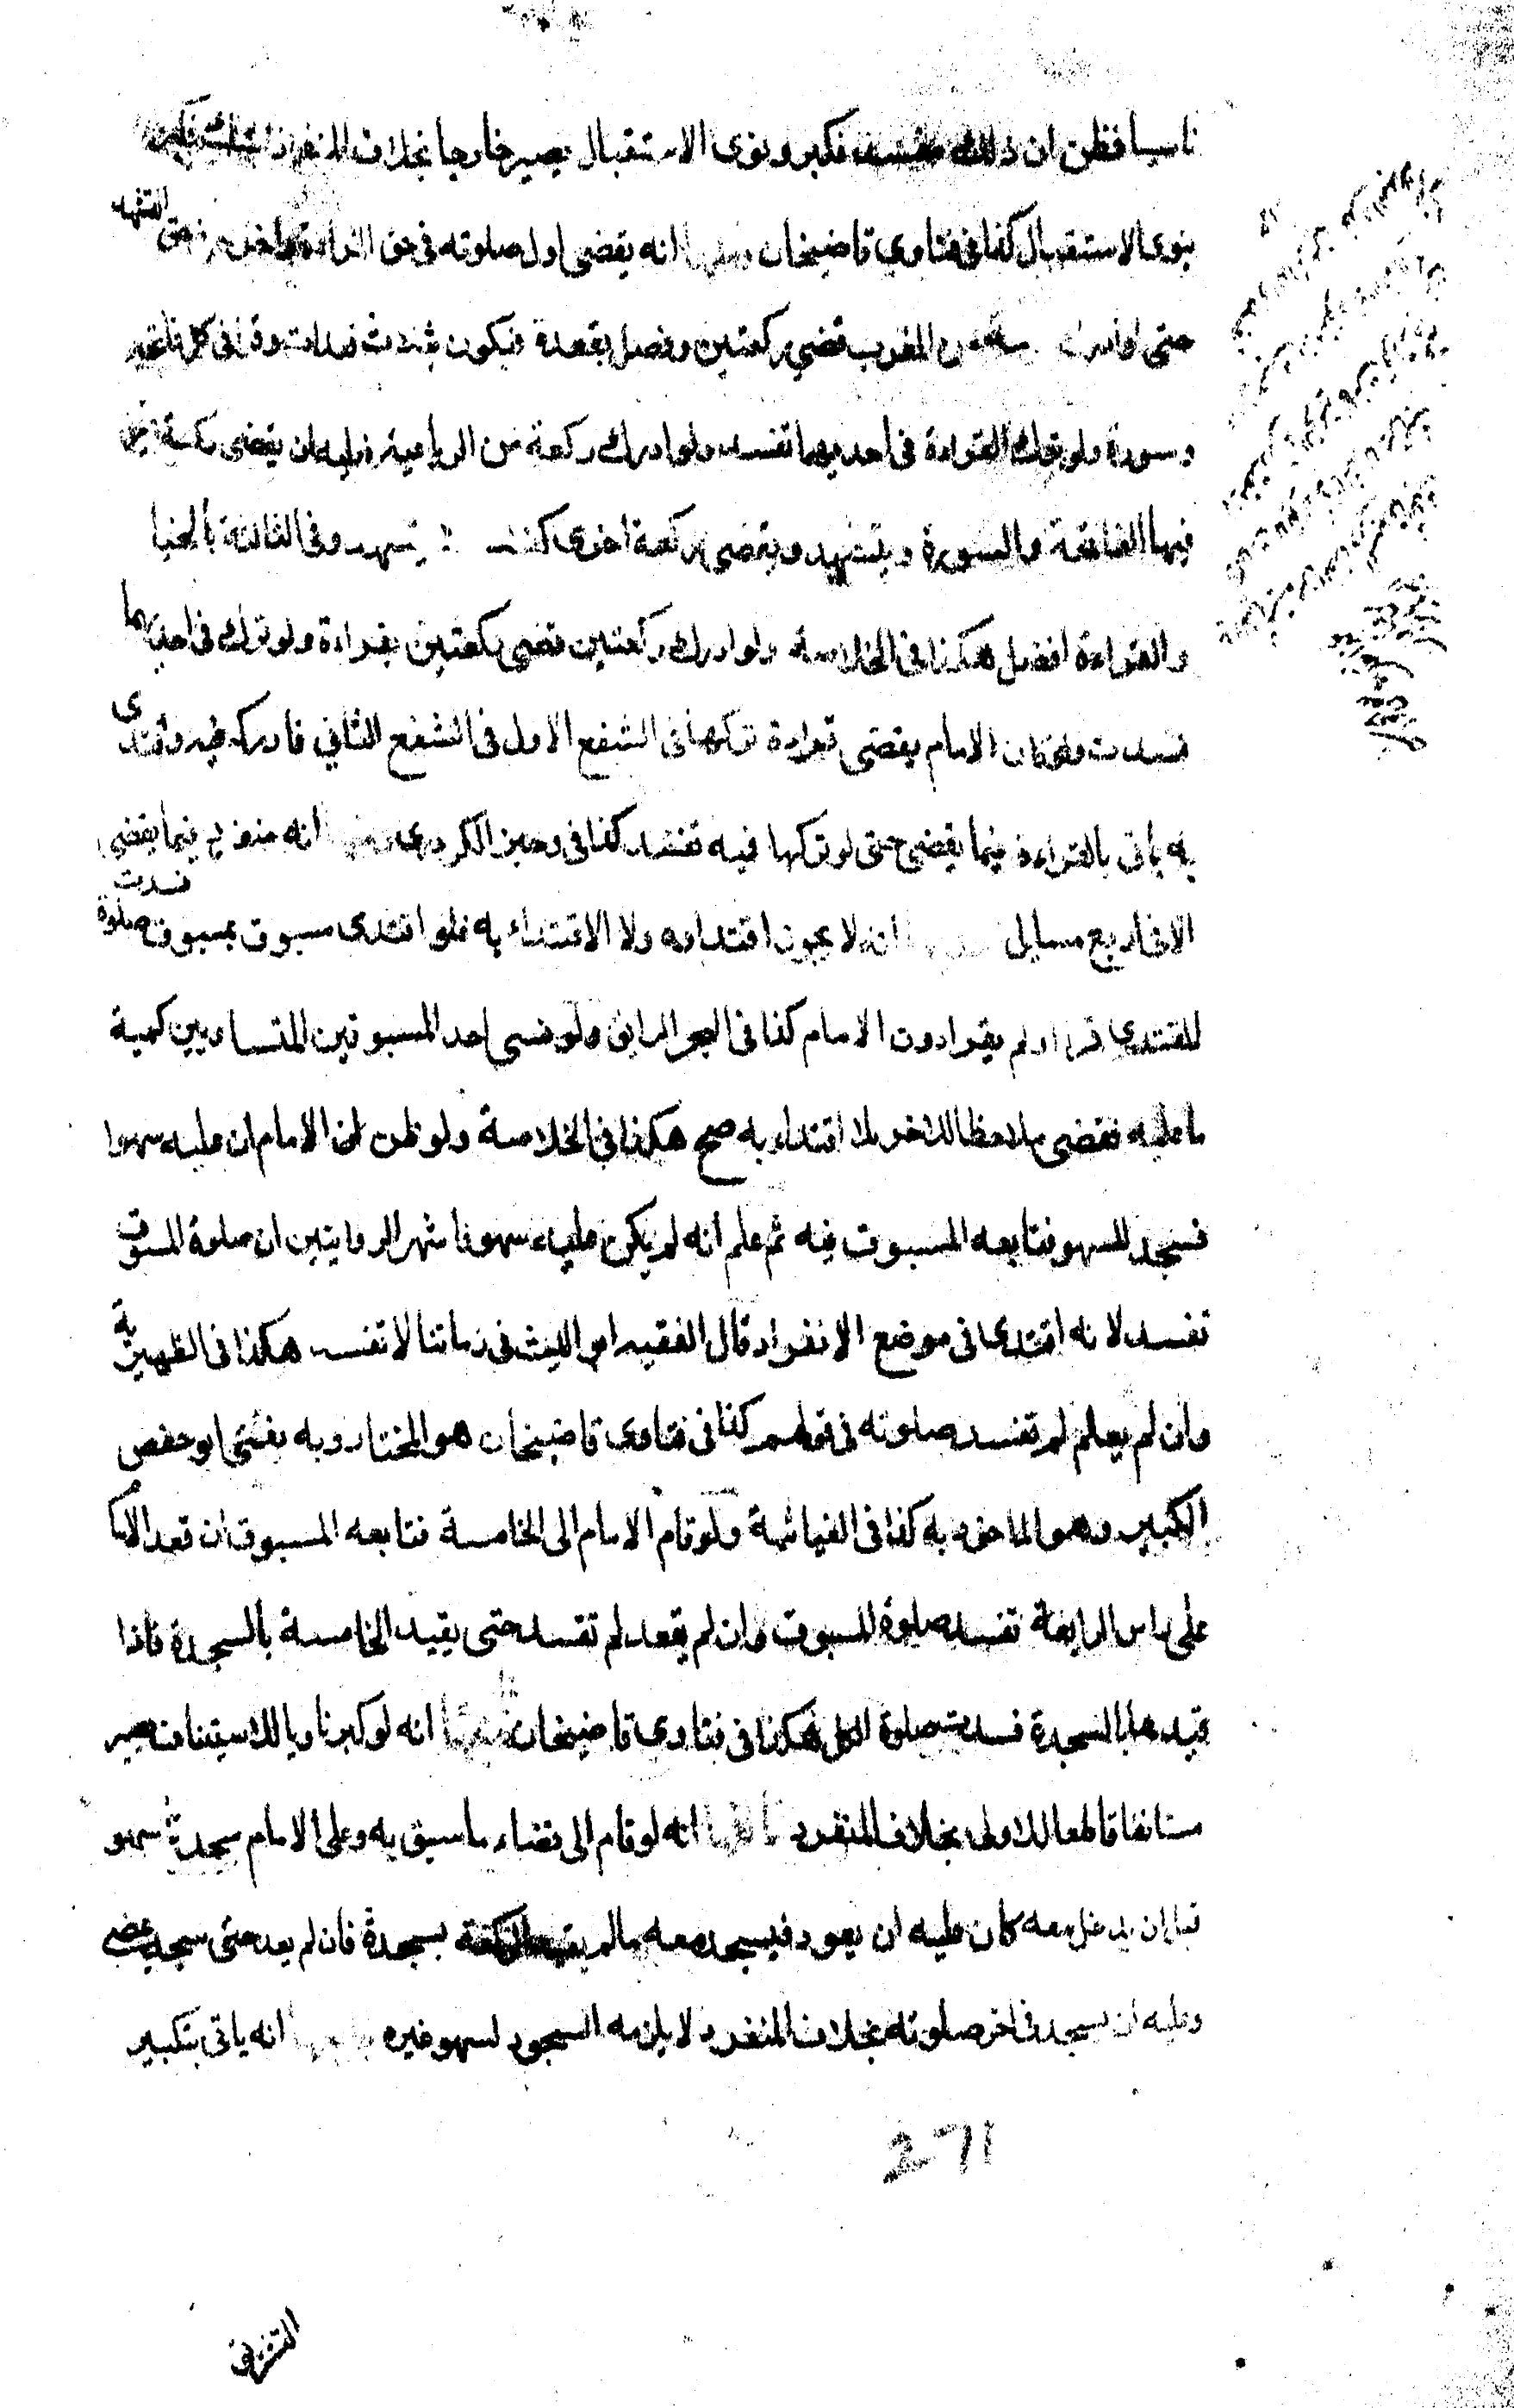 ناسيا فظن ان ذلك مفسد فكبر ونوى الاستقبال يصير خارجا بخلاف المنفرد
ينوى الاستقبال كذا فى فتاوى قاضيخان ومنها انه يقضى اول صلوته فى حق القراءة واخرها فى حق التشهد
حتى لو ادرك ركعة من المغرب قضى ركعتين وفصل بقعدة فيكون بثلاث قعدات وقرأ فى كل فاتحة
وسورة ولو ترك القراءة فى احديهما تفسد ولو ادرك ركعة من الرباعية فعليه ان يقضى ركعة يقرأ
فيها الفاتحة والسورة ويتشهد ويقضى ركعة اخرى كذلك ولا يتشهد وفى الثالثة بالخيا
والقراءة افضل هكذا فى الخلاصة ولو ادرك ركعتين قضى ركعتين بقراءة ولو ترك فى احديهما
فسدت ولو كان الامام يقضى قراءة تركها فى الشفع الاول فى الشفع الثانى فادركه فيه واقتدى
به يأتى بالقراءة فيما يقضى حتى لو تركها فيه تفسد كذا فى وجيز الكردرى ومنها انه منفرد فيما يقضى
الا فى اربع مسايل انه لا يجوز اقتداوه ولا الاقتداء به فلو اقتدى مسبوق بمسبوق فسدت صلوة
المقتدى قرا او لم يقرا دون الامام كذا فى البحر الرايق ولو نسى احد المسبوقين المتساويين كمية
ما عليه فقضى ملاحظا للاخر بلا اقتداء به صح هكذا فى الخلاصة ولو ظن الامام ان عليه سهوا
فسجد للسهو فتابعه المسبوق فيه ثم علم انه لم يكن عليه سهو فاشهر الروايتين ان صلوة المسبوق
تفسد لانه اقتدى فى موضع الانفراد قال الفقيه ابو الليث فى زماننا لا تفسد هكذا فى الظهيرية
وان لم يعلم لم تفسد صلوته فى قولهم كذا فى فتاوى قاضيخان هو المختار وبه يفتى ابو حفص
الكبير وهو الماخوذ به كذا فى الغياثية ولو قام الامام الى الخامسة فتابعه المسبوق ان قعد الاما
على راس الرابعة تفسد صلوة المسبوق وان لم يقعد لم تفسد حتى يقيد الخامسة بالسجدة فاذا
قيدها بالسجدة فسدت صلوة الكل هكذا فى فتاوى قاضيخان انه لو كبر ناويا للاستيناف يصير
مستانفا قاطعا للاولى بخلاف المنفرد ثالثها انه لو قام الى قضاء ما سبق به وعلى الامام سجدتا سهو
قبل ان يدخل معه كان عليه ان يعود فيسجد معه مالم يقيد الركعة بسجدة فان لم يعد حتى سجد يمضى
وعليه ان يسجد فى اخر صلوته بخلاف المنفرد لا يلزمه السجود لسهو غيره انه ياتى بتكبير
271
التشريق